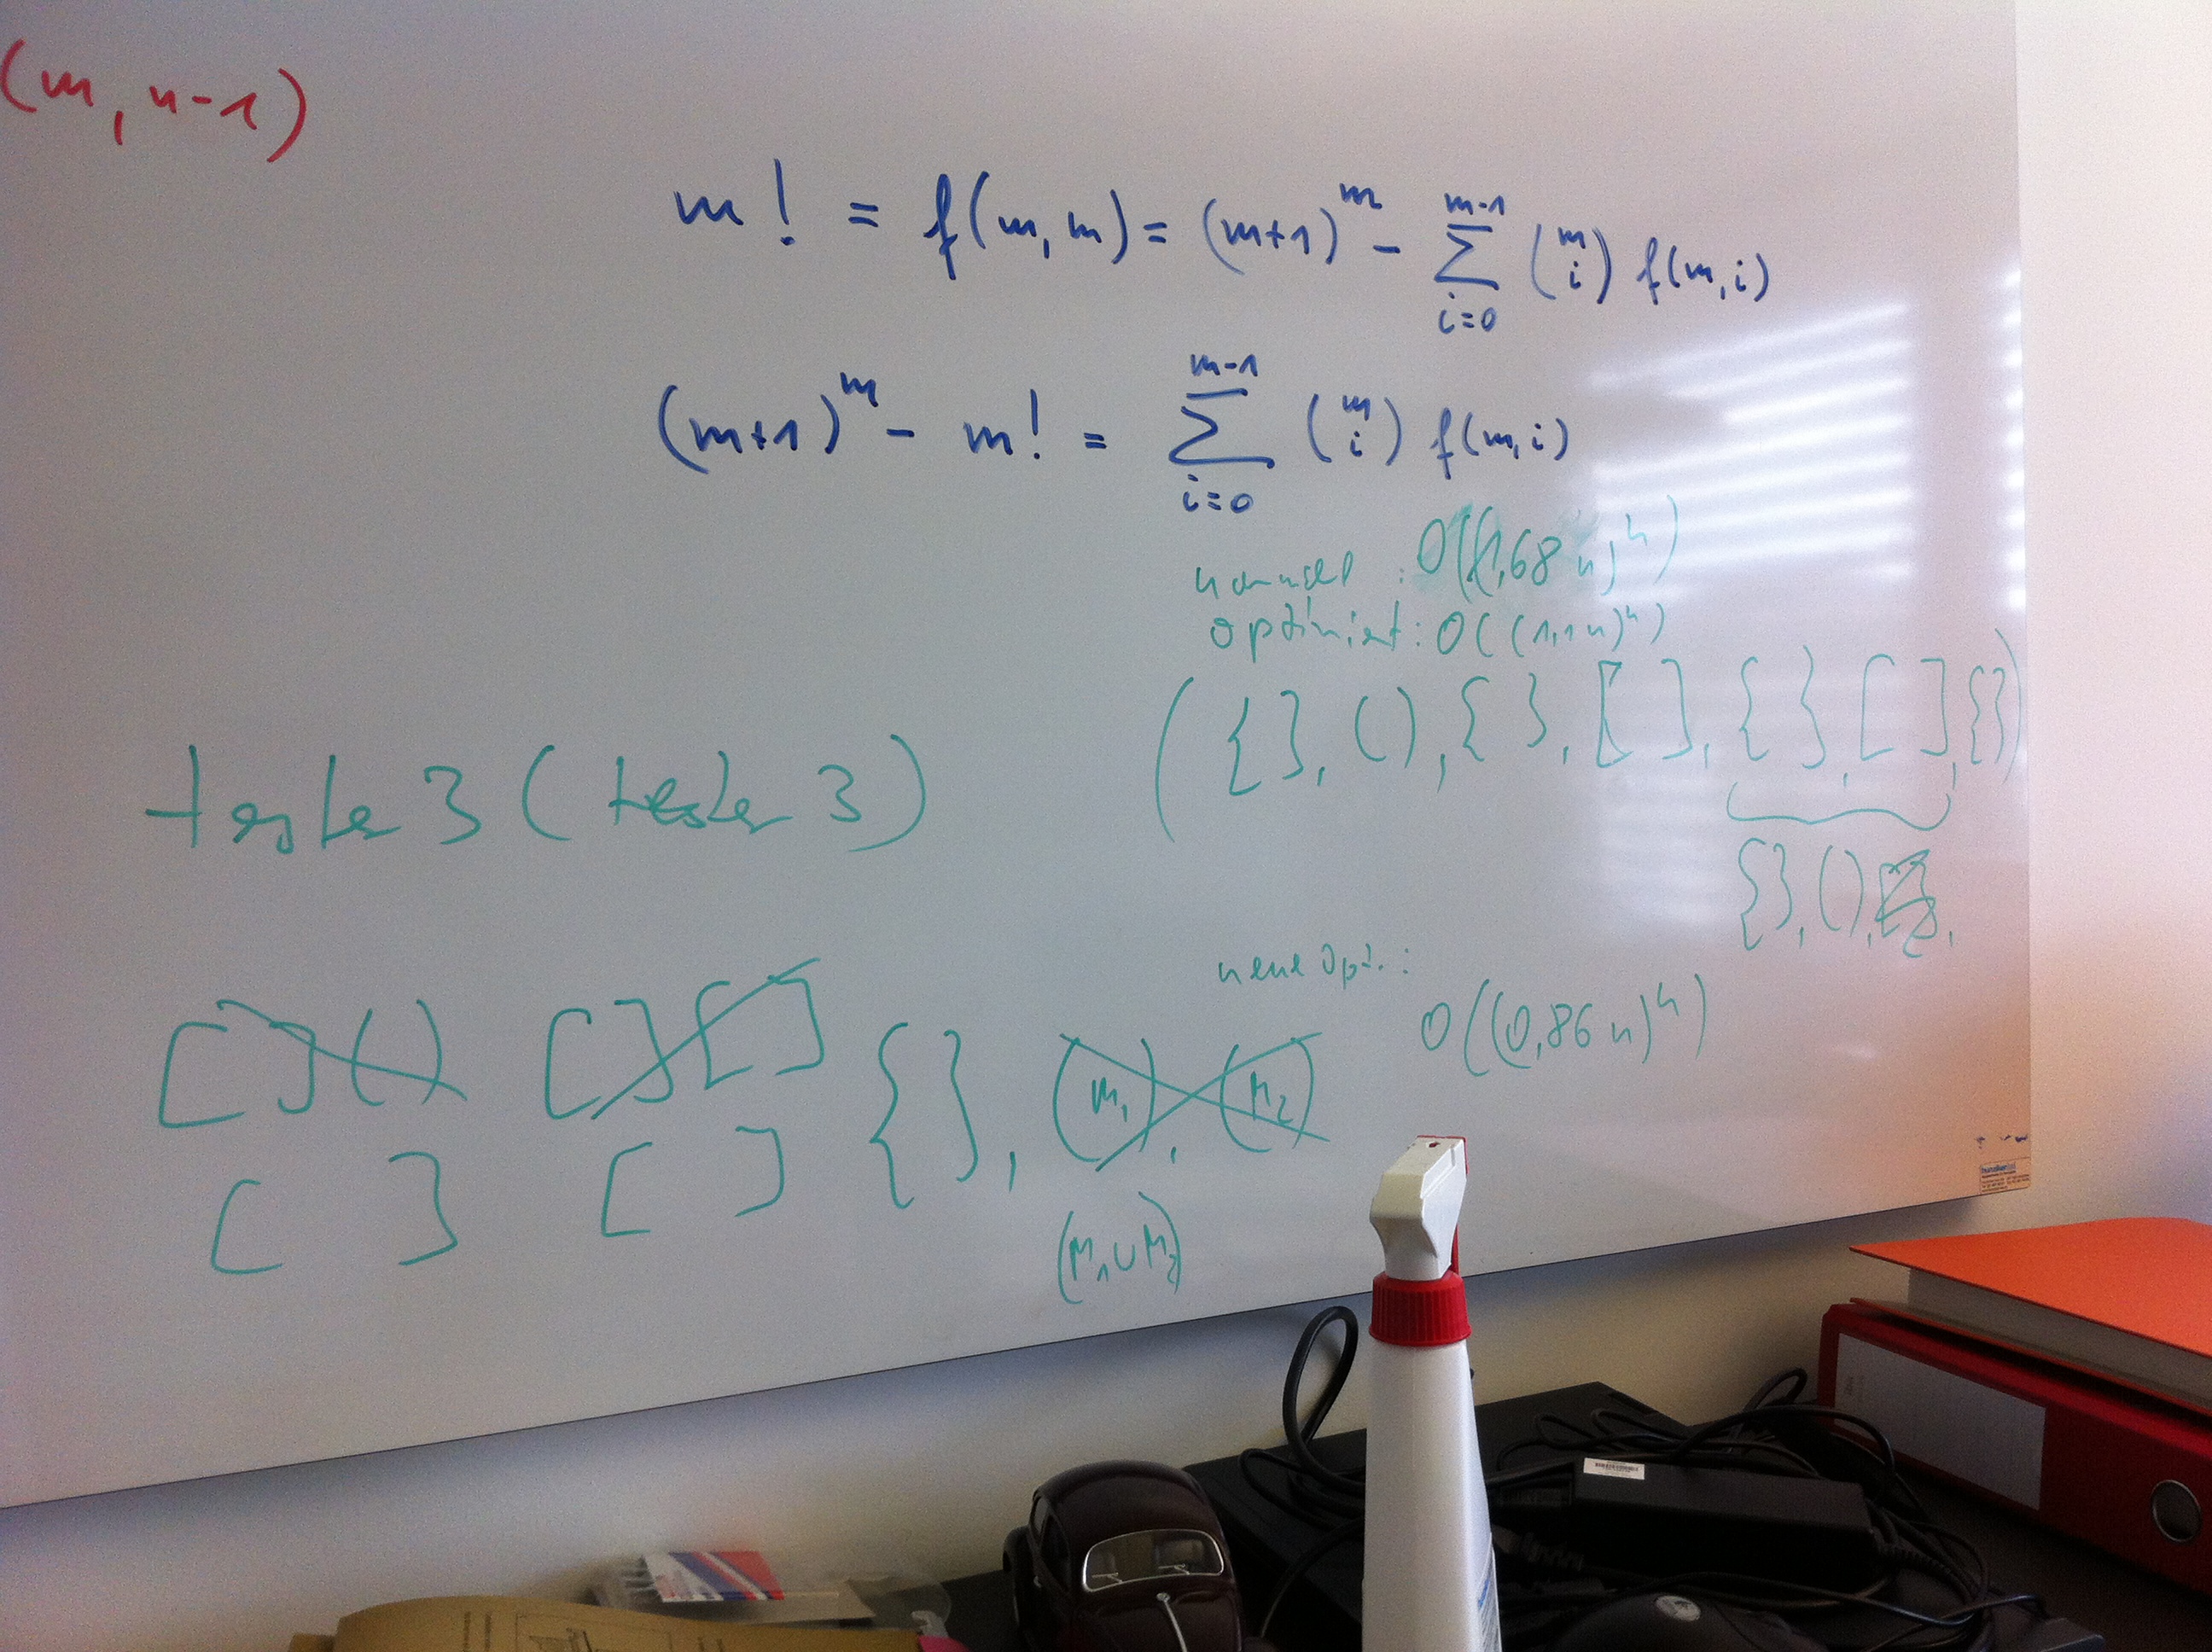 (m, n-1)
m! = f(m,m) = (m+1)^m - \sum_{i=0}^{m-1} \binom{m}{i} f(m,i)
(m+1)^m - m! = \sum_{i=0}^{m-1} \binom{m}{i} f(m,i)
normal : O((1,68 n)^n)
optimiert : O((1,1 n)^n)
({ }, ( ), { }, [ ], { }, [ ], { })
tester 3 ( tester 3 )
{ }, ( ),
neue Opt. :
O((0,86 n)^n)
[ ] ( ) [ ] [ ] { }, (M_1), (M_2)
[ ] [ ]
(M_1 ∪ M_2)